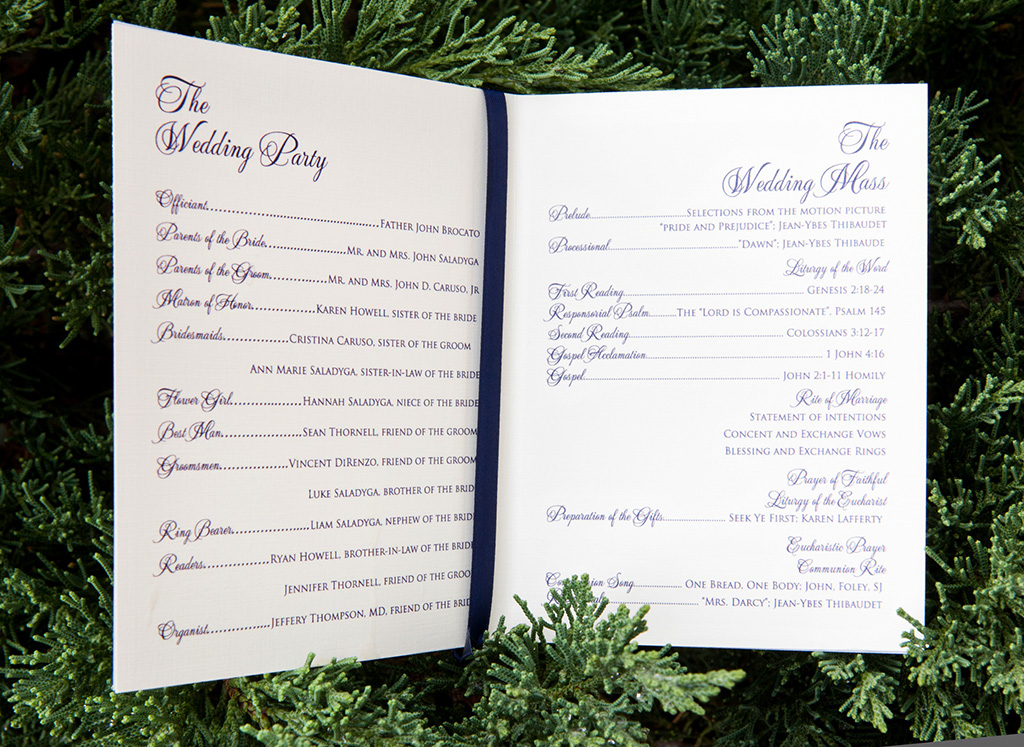 The
Wedding Party
Officiant..........FATHER JOHN BROCATO
Parents of the Bride..........MR. AND MRS. JOHN SALADYGA
Parents of the Groom..........MR. AND MRS. JOHN D. CARUSO, JR
Matron of Honor..........KAREN HOWELL, SISTER OF THE BRIDE
Bridesmaids..........CRISTINA CARUSO, SISTER OF THE GROOM
ANN MARIE SALADYGA, SISTER-IN-LAW OF THE BRIDE
Flower Girl..........HANNAH SALADYGA, NIECE OF THE BRIDE
Best Man..........SEAN THORNELL, FRIEND OF THE GROOM
Groomsmen..........VINCENT DIRENZO, FRIEND OF THE GROOM
LUKE SALADYGA, BROTHER OF THE BRID
Ring Bearer..........LIAM SALADYGA, NEPHEW OF THE BRID
Readers..........RYAN HOWELL, BROTHER-IN-LAW OF THE BRID
JENNIFER THORNELL, FRIEND OF THE GROO
Organist..........JEFFERY THOMPSON, MD, FRIEND OF THE BRID
The
Wedding Mass
Prelude..........SELECTIONS FROM THE MOTION PICTURE
"PRIDE AND PREJUDICE": JEAN-YBES THIBAUDET
Processional.........."DAWN": JEAN-YBES THIBAUDE
Liturgy of the Word
First Reading..........GENESIS 2:18-24
Responsorial Psalm..........THE "LORD IS COMPASSIONATE", PSALM 145
Second Reading..........COLOSSIANS 3:12-17
Gospel Acclamation..........1 JOHN 4:16
Gospel..........JOHN 2:1-11 HOMILY
Rite of Marriage
STATEMENT OF INTENTIONS
CONCENT AND EXCHANGE VOWS
BLESSING AND EXCHANGE RINGS
Prayer of Faithful
Liturgy of the Eucharist
Preparation of the Gifts..........SEEK YE FIRST: KAREN LAFFERTY
Eucharistic Prayer
Communion Rite
Song..........ONE BREAD, ONE BODY: JOHN, FOLEY, SJ
"MRS. DARCY": JEAN-YBES THIBAUDET